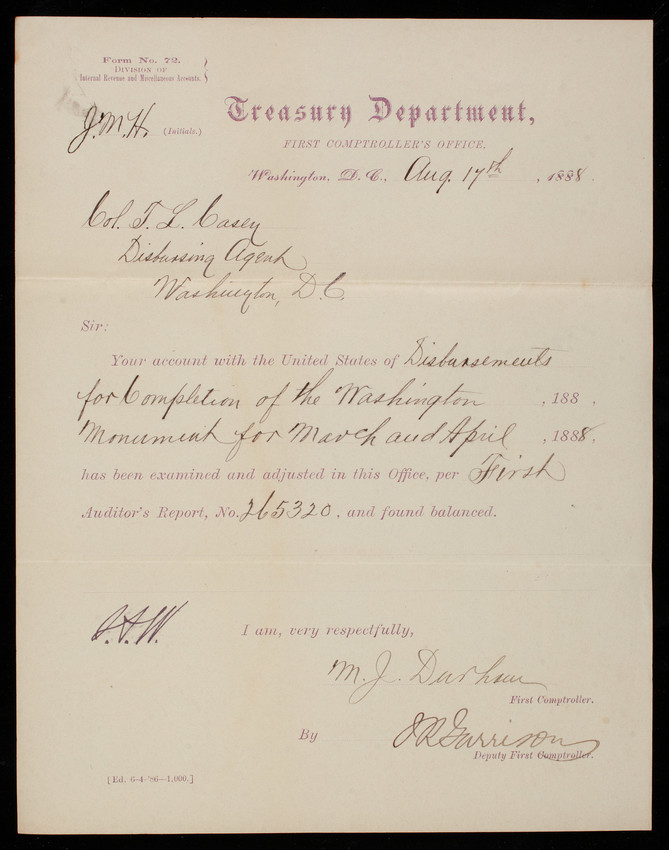 Form No. 72.
DIVISION OF
Internal Revenue and Miscellaneous Accounts.
J.M.H. (Initials.)
Treasury Department,
FIRST COMPTROLLER'S OFFICE,
Washington, D. C., Aug. 17th, 1888.
Col. T. L. Casey
Disbursing Agent
Washington, D.C.
Sir:
Your account with the United States of Disbursements
for Completion of the Washington , 188 ,
Monument for March and April , 1888,
has been examined and adjusted in this Office, per First
Auditor's Report, No. 265320. and found balanced.
I am, very respectfully,
M. J. Durham
First Comptroller.
By J R Garrison
Deputy First Comptroller.
[Ed. 6-4-'86—1,000.]